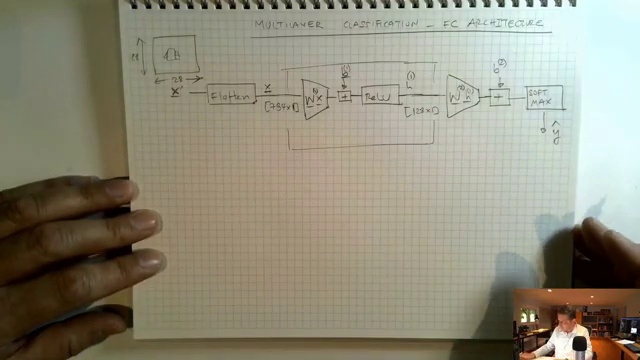 MULTILAYER CLASTIFICATION - FC ARCHITECTURE
28
28
x'
Flatten
x
[784x1]
W(1) x
b(1)
+
ReLU
h(1)
[128x1]
W(2) h(1)
b(2)
+
SOFT
MAX
ŷ